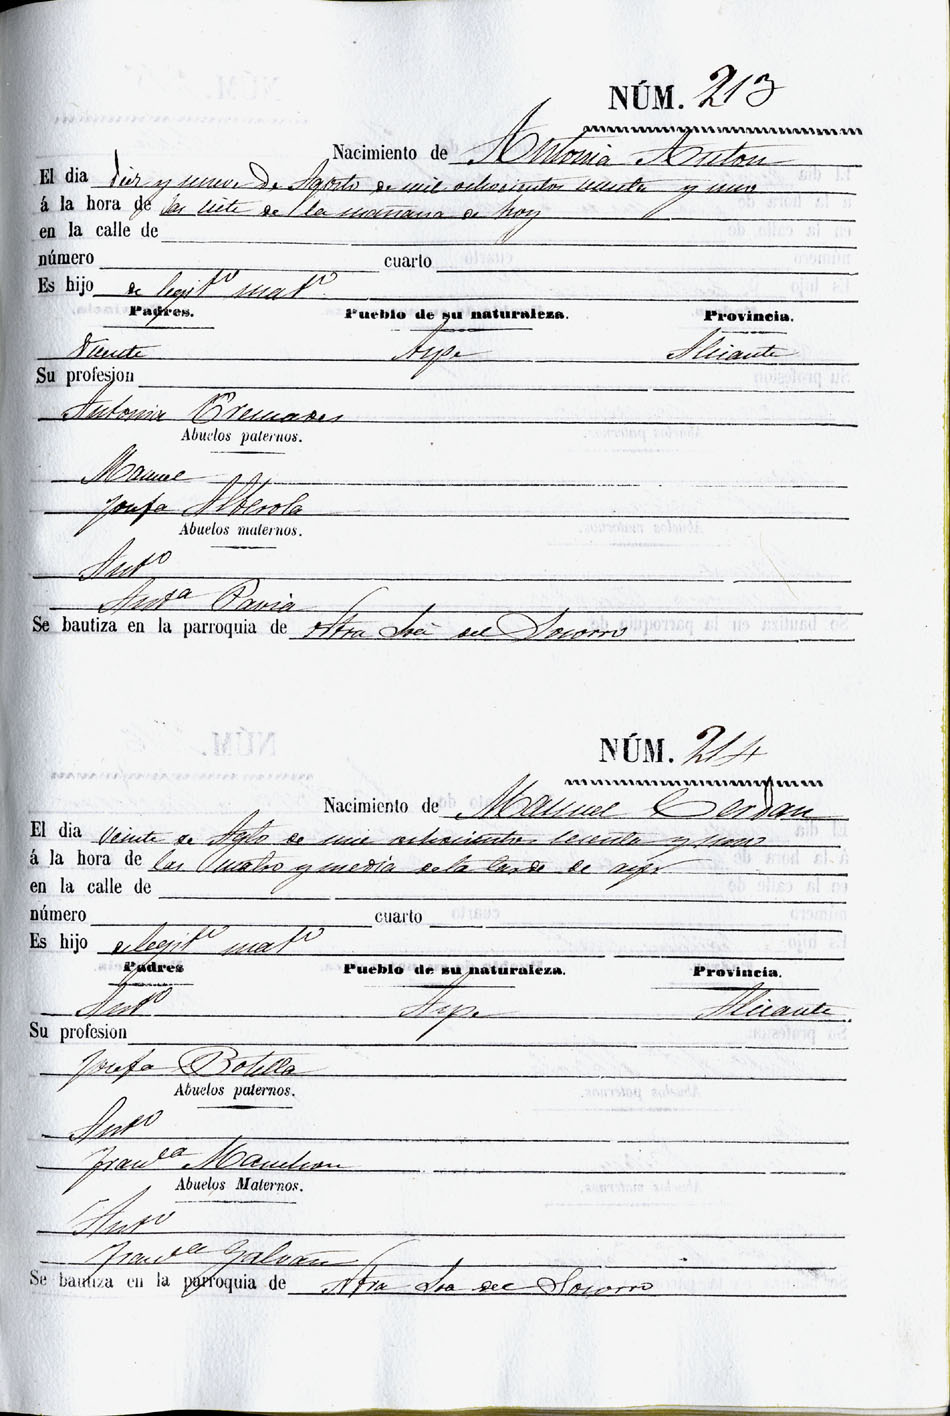 NÚM. 213
Nacimiento de Antonia Anton
El dia diez y nueve de Agosto de mil ochocientos sesenta y uno
á la hora de las siete de la mañana de hoy
en la calle de
número cuarto
Es hijo de legit.º mat.º
Padres. Pueblo de su naturaleza. Provincia.
Vicente Aspe Alicante
Su profesion
Antonia Cremades
Abuelos paternos.
Manuel
Josefa Alberola
Abuelos maternos.
Ant.º
Ant.a Pavia
Se bautiza en la parroquia de Ntra Sra del Socorro
NÚM. 214
Nacimiento de Manuel Cerdan
El dia veinte de Agto de mil ochocientos sesenta y uno
á la hora de las cuatro y media de la tarde de ayer
en la calle de
número cuarto
Es hijo de legit.º mat.º
Padres Pueblo de su naturaleza. Provincia.
Ant.º Aspe Alicante.
Su profesion
Josefa Botella
Abuelos paternos.
Ant.º
Fran.ca
Abuelos Maternos.
Ant.º
Fran.ca Galvañ
Se bautiza en la parroquia de Ntra Sra del Socorro